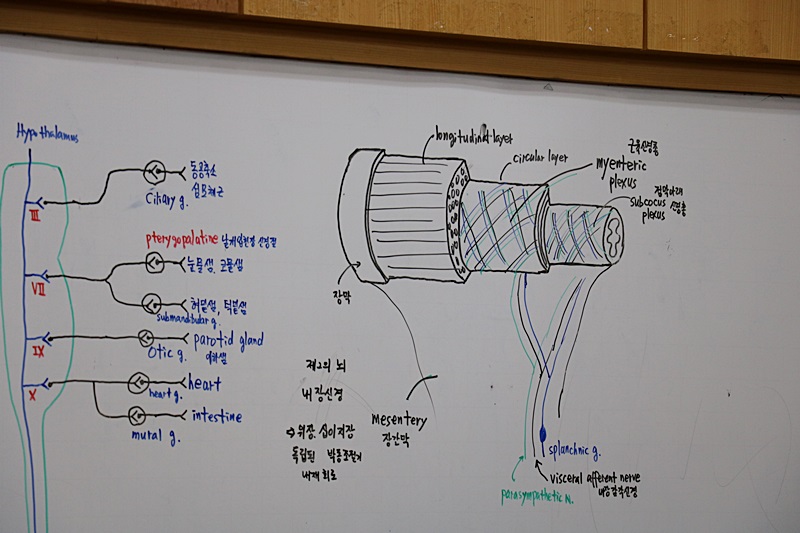 Hypothalamus
III
동공축소
섬모체근
Ciliary g.
pterygopalatine 날개입천장 신경절
눈물샘, 코물샘
VII
혀밑샘, 턱밑샘
submandibular g.
IX
parotid gland
이하샘
Otic g.
X
heart
heart g.
intestine
mural g.
longitudinal layer
circular layer
근육신경총
myenteric
plexus
점막아래
subcocus 신경총
plexus
장막
제2의 뇌
내장신경
⇒ 위장. 십이지장
독립된 박동조절기
내재 회로
mesentery
장간막
splanchnic g.
visceral afferent nerve
내장감각신경
parasympathetic N.